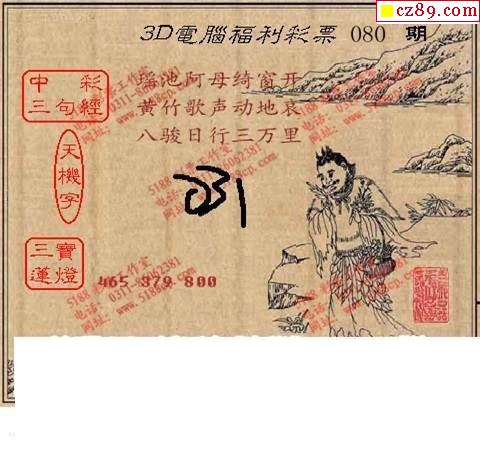 cz89.com
3D電腦福利彩票 080 期
中彩
三句經
瑶池阿母绮窗开
黄竹歌声动地哀
八骏日行三万里
天機字
031
三寶
蓮燈
465 379 800